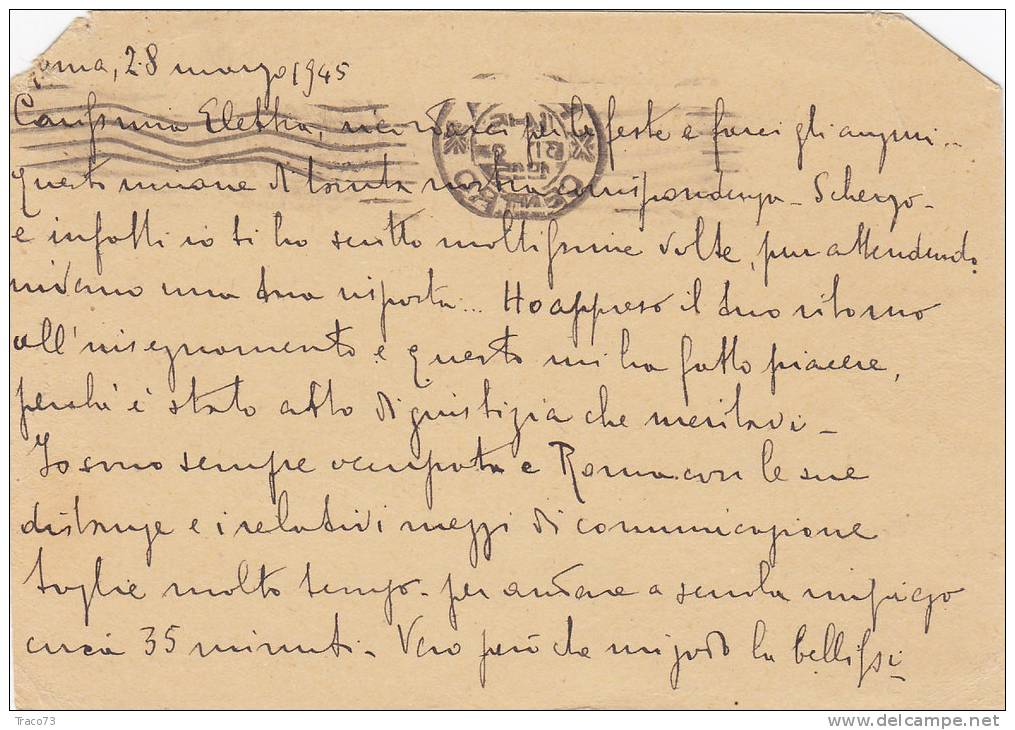 Roma, 28 marzo 1945
Carissima Elettra, ricordarci per le feste e farci gli auguri...
questo rimane di tanta nostra corrispondenza - Scherzo -
e infatti io ti ho scritto moltissime volte, pur attendendo
invano una tua risposta... Ho appreso il tuo ritorno
all'insegnamento e questo mi ha fatto piacere,
perché è stato atto di giustizia che meritavi -
Io sono sempre occupata e Roma con le sue
distanze e i relativi mezzi di comunicazione
toglie molto tempo - per andare a scuola impiego
circa 35 minuti - Vero però che mi godo la bellissi-
Traco73
delcampe.net